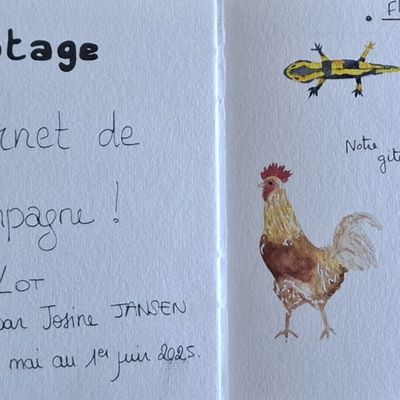 otage
rnet de
mpagne !
LOT
par Josine JANSEN
mai au 1er juin 2025.
Notre
gite